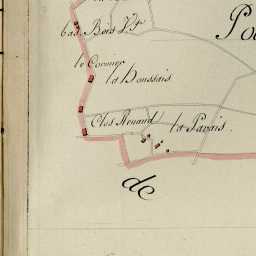 bas Bois
Po
le Cormier
la Houssais
Clos Renaud
la Patais.
de